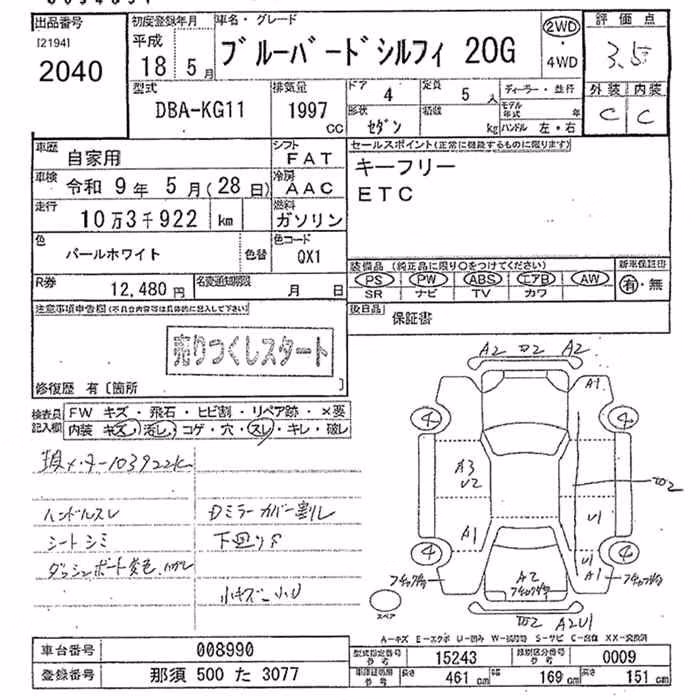 出品番号 初度登録年月 車名・グレード 2WD ・ 4WD 評価点
[2194] 2040 平成 18 5月 ブルーバードシルフィ 20G 3.5
型式 DBA-KG11 排気量 1997 CC ドア 4 定員 5 人 ディーラー・並行 外装 内装
形状 セダン 積載 kg モデル年式 年 ハンドル 左・右 C C
車歴 自家用 シフト FAT セールスポイント(正常に機能するものに限ります)
車検 令和 9年 5月(28日) 冷房 AAC キーフリー
走行 10万3千922 km 燃料 ガソリン ETC
色 パールホワイト 色替 色コード QX1
R券 12,480円 名変通知期限 月 日
装備品 (純正品に限り○をつけてください) 新車保証書
PS PW ABS エアB AW 有・無
SR ナビ TV カワ
後日品 保証書
注意事項申告欄(不具合内容等は具体的に記入して下さい)
売りつくしスタート
修復歴 有 [箇所 ]
検査員記入欄 FW キズ・飛石・ヒビ割・リペア跡・×要
内装 キズ・汚し・コゲ・穴・スレ・キレ・破レ
現メーター103922K
ハンドルスレ Dミラーカバー割レ
シートシミ 下廻りサ
ダッシュボード変色、ハガレ
小キズ、小U
A2 A2
A1
4 4
A3
U2
A1 U1
U1
A1
4 4
A2
スペア
A2U1
A-キズ E-エクボ U-凹み W-波時 S-サビ C-腐食 XX-交換済
車台番号 008990 型式指定番号 15243 類別区分番号 0009
登録番号 那須 500 た 3077 長さ 461 cm 幅 169 cm 高さ 151 cm